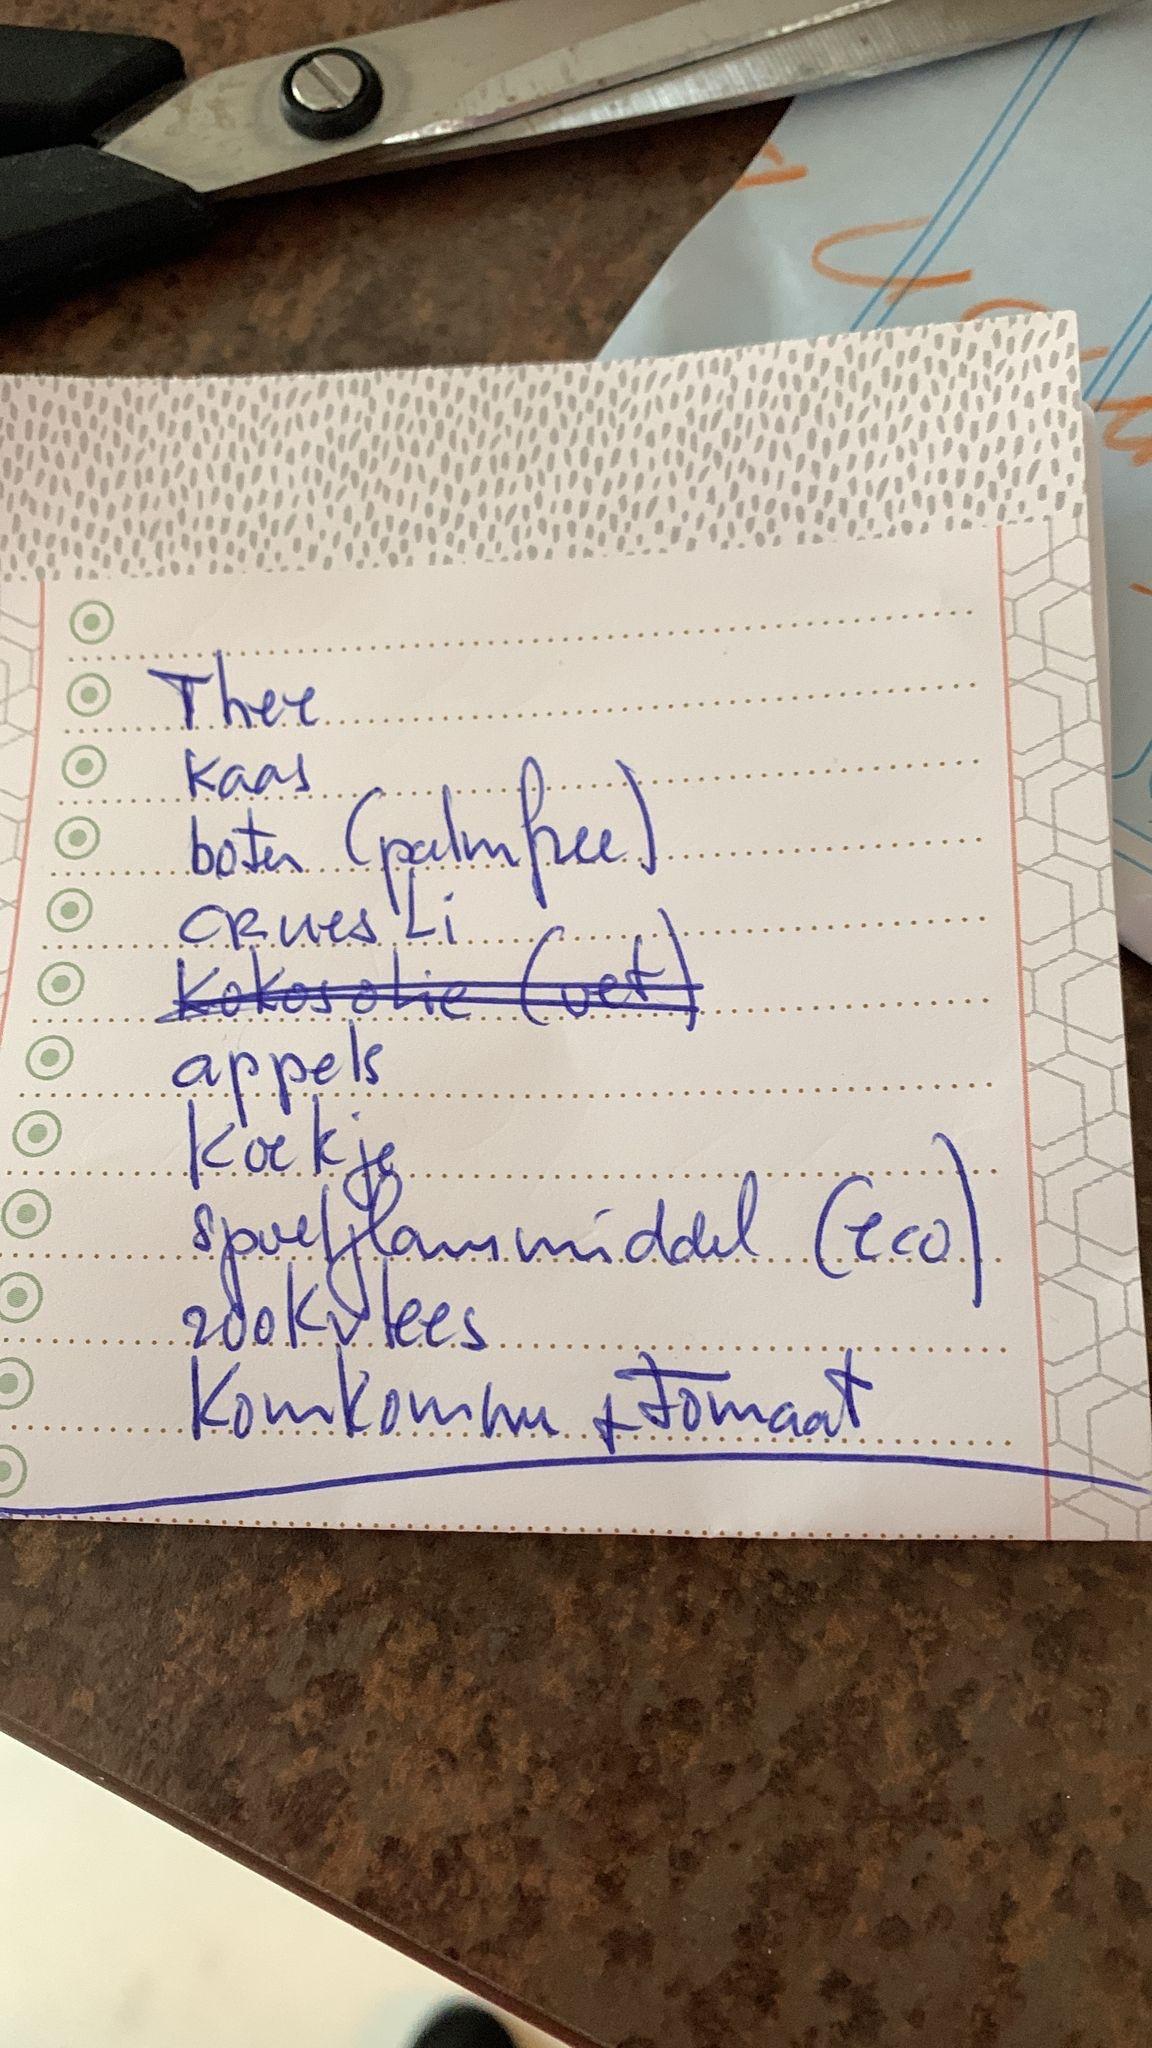 Thee
kaas
boter (palmfree)
CRUesLi
Kokosolie (vet)
appels
Koekje
(eco)
rookvlees
Komkommer + Tomaat